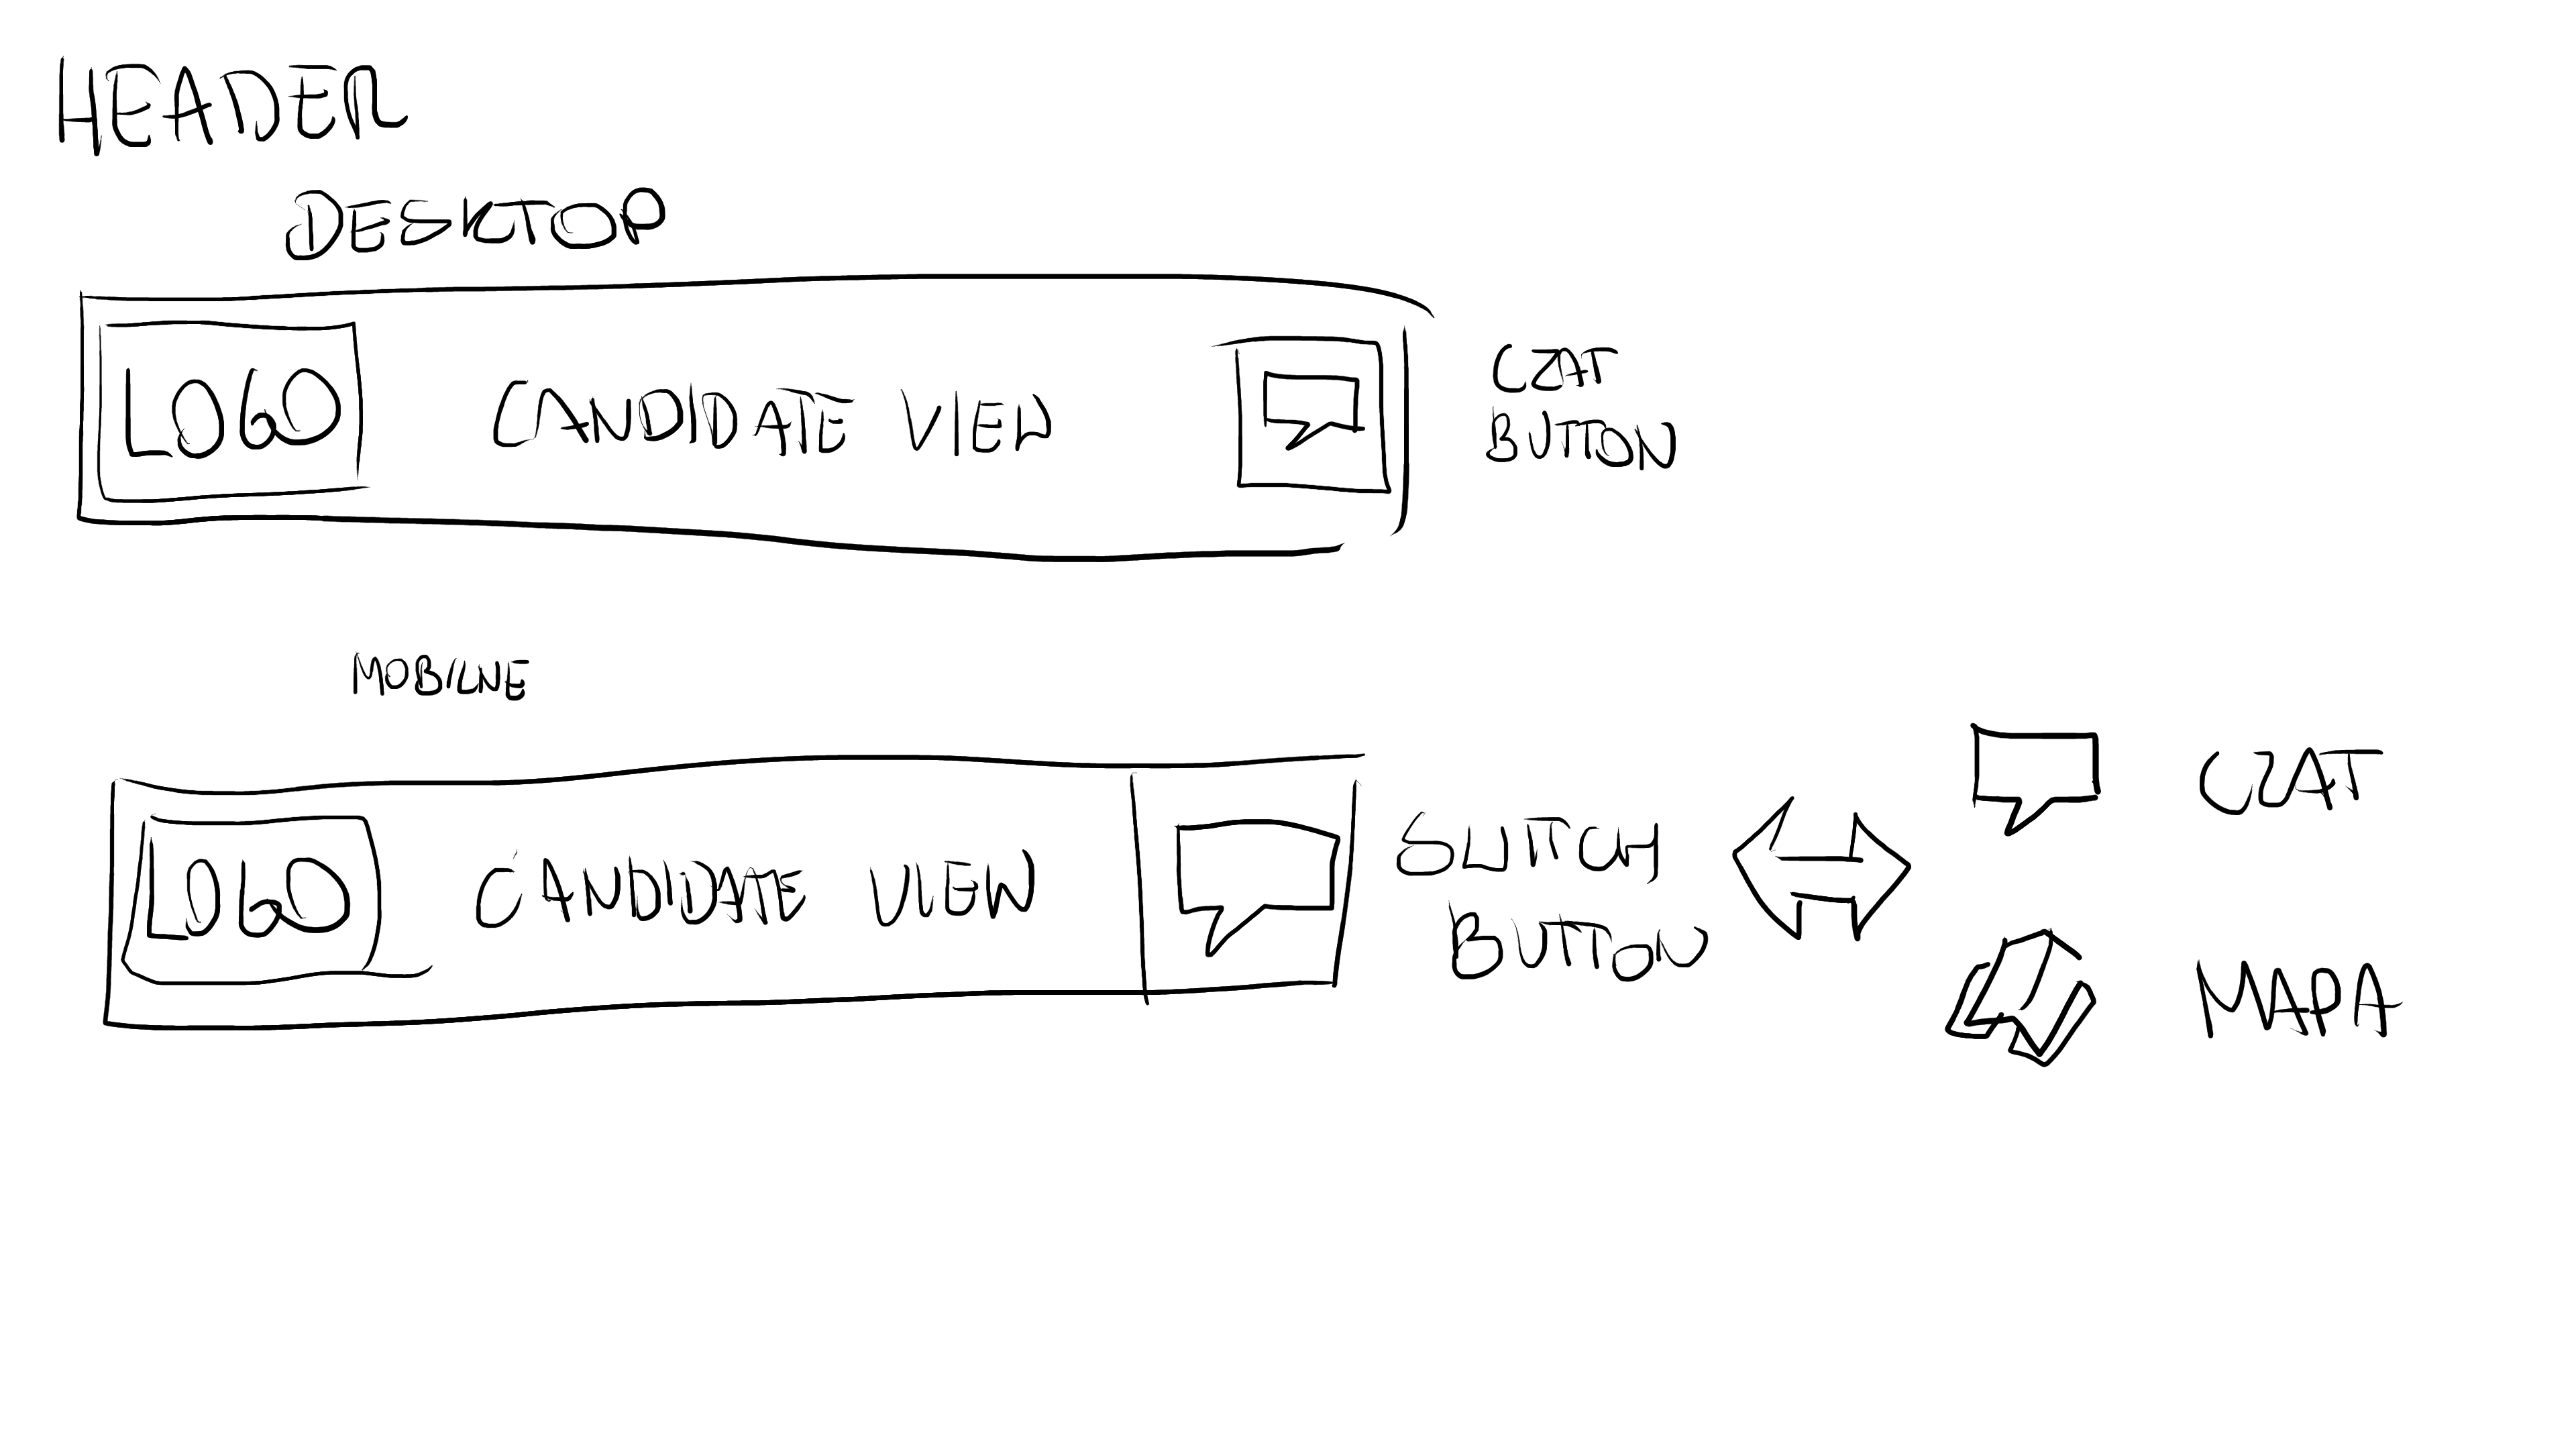 HEADER
DESKTOP
LOGO CANDIDATE VIEW
CZAT
BUTTON
MOBILNE
LOGO CANDIDATE VIEW
SWITCH
BUTTON
CZAT
MAPA